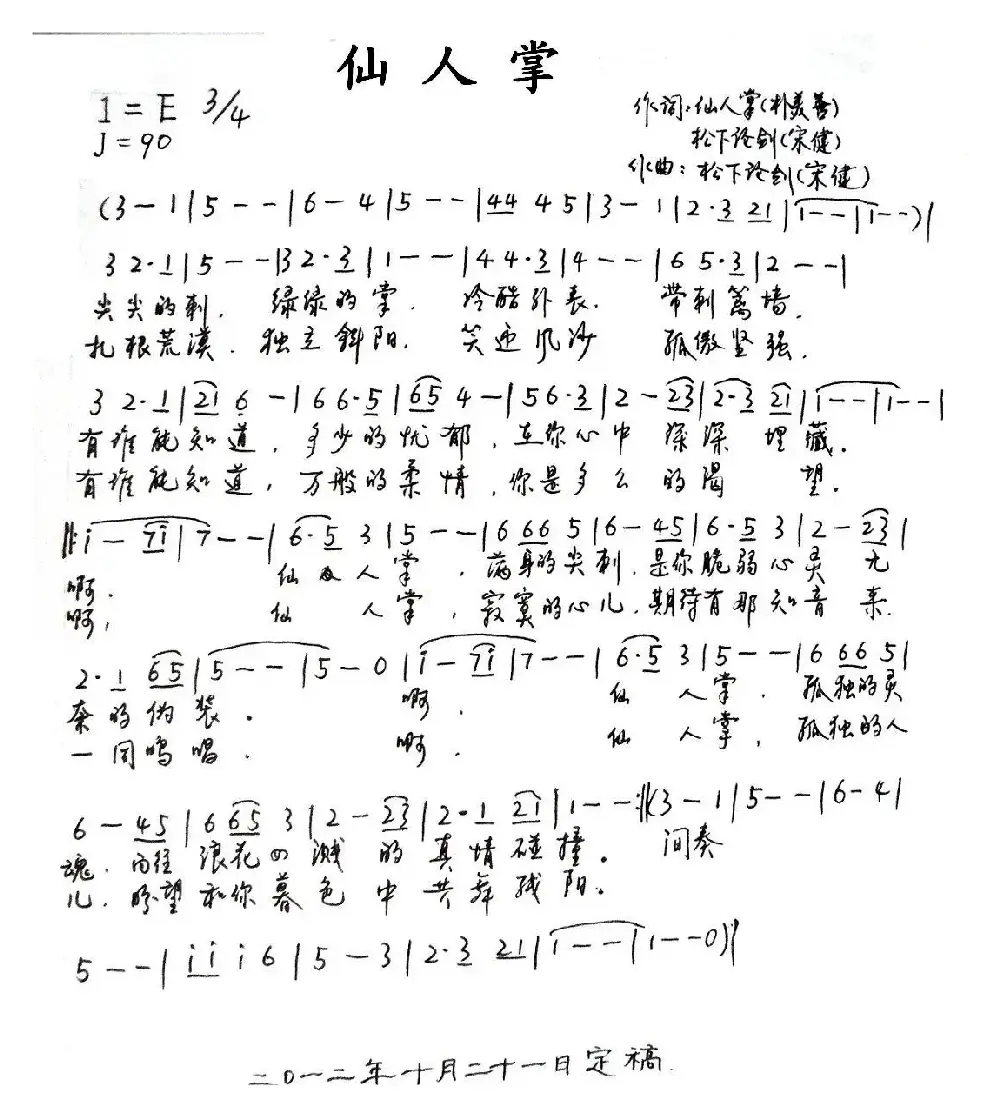 仙人掌
1=E 3/4
作词:仙人掌(朴美善)
J=90
松下论剑(宋健)
作曲:松下论剑(宋健)
(3 - 1|5 - -|6 - 4|5 - -|44 4 5|3 - 1|2·3 21|1 - -|1 - -)|
3 2·1|5 - -|3 2·3|1 - -|4 4·3|4 - -|6 5·3|2 - -|
尖尖的刺. 绿绿的掌. 冷酷外表. 带刺篱墙.
扎根荒漠. 独立斜阳. 笑迎风沙 孤傲坚强.
3 2·1|21 6 -|6 6·5|65 4 -|5 6·3|2 - 23|2·3 21|1 - -|1 - -|
有谁能知道, 多少的忧郁, 在你心中 深深 埋藏.
有谁能知道, 万般的柔情, 你是多么的渴 望.
‖:i - 7i|7 - -|6·5 3|5 - -|6 66 5|6 - 45|6·5 3|2 - 23|
啊. 仙 人掌. 满身的尖刺, 是你脆弱心灵 无
啊, 仙 人掌, 寂寞的心儿, 期待有那知音 来.
2·1 65|5 - -|5 - 0|i - 7i|7 - -|6·5 3|5 - -|6 66 5|
奈的伪装. 啊, 仙 人掌. 孤独的灵
一同鸣唱. 啊. 仙 人掌, 孤独的人
6 - 45|6 65 3|2 - 23|2·1 21|1 - -:‖(3 - 1|5 - -|6 - 4|
魂. 向往 浪花四溅 的 真情碰撞. 间奏
儿. 盼望和你暮色 中 共舞残阳.
5 - -|i i i 6|5 - 3|2·3 21|1 - -|1 - - 0)‖
二0一二年十月二十一日定稿.